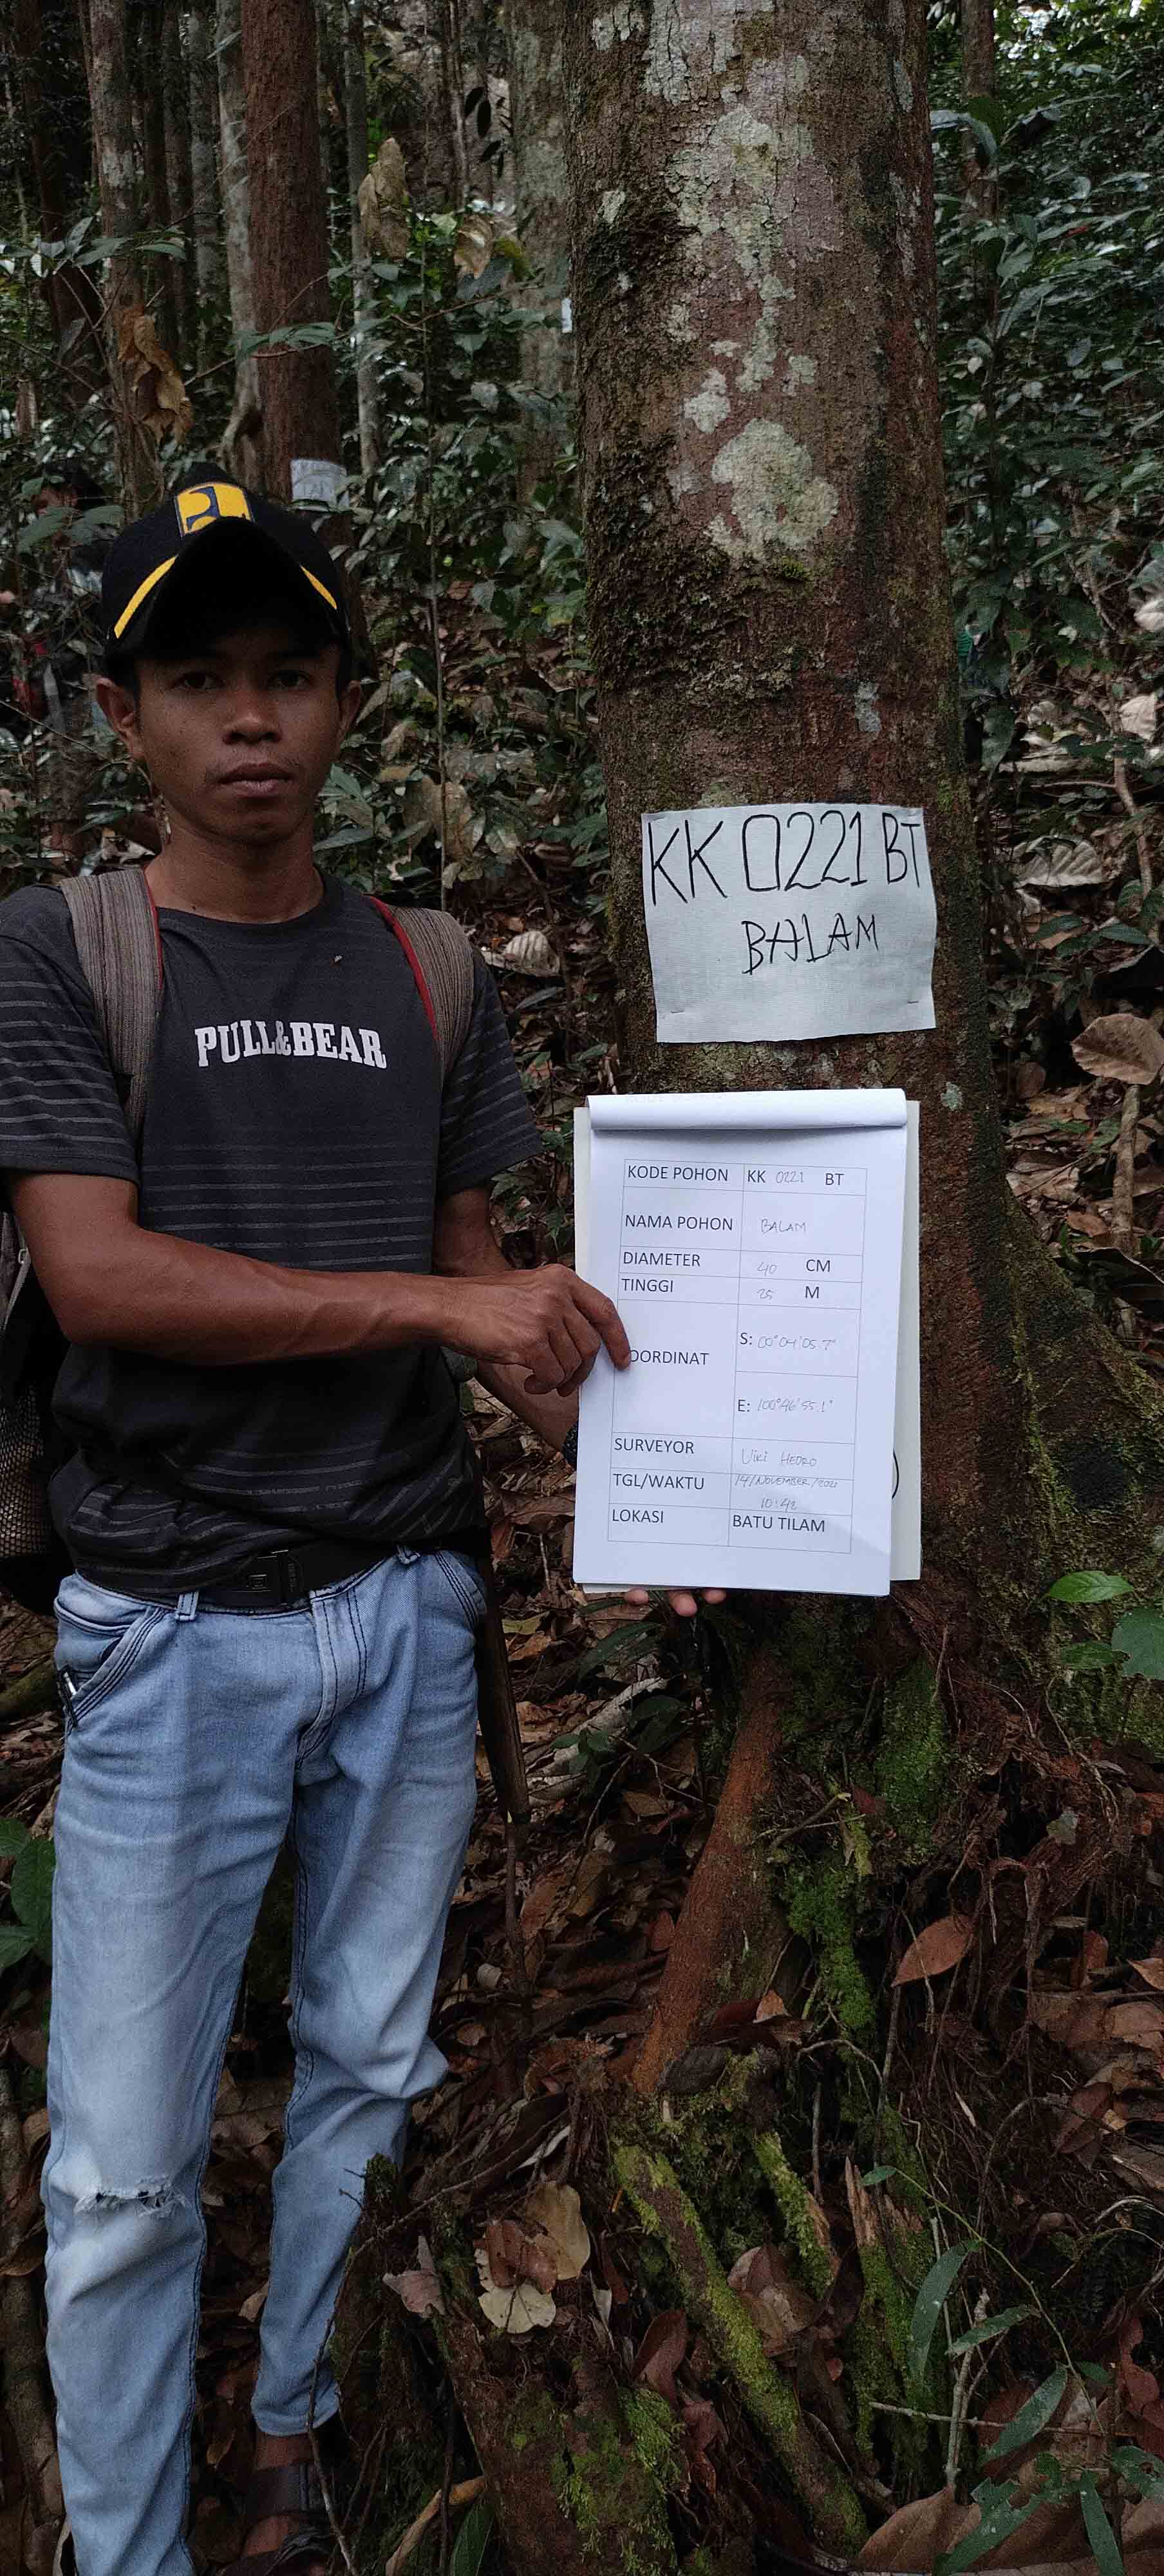 KK 0221 BT
BALAM
PULL&BEAR
KODE POHON KK 0221 BT
NAMA POHON BALAM
DIAMETER 40 CM
TINGGI 25 M
OORDINAT S: 00°04'05.7"
E: 100°46'55.1"
SURVEYOR Uiki HEDRO
TGL/WAKTU 14/NOVEMBER/2021
10:42
LOKASI BATU TILAM